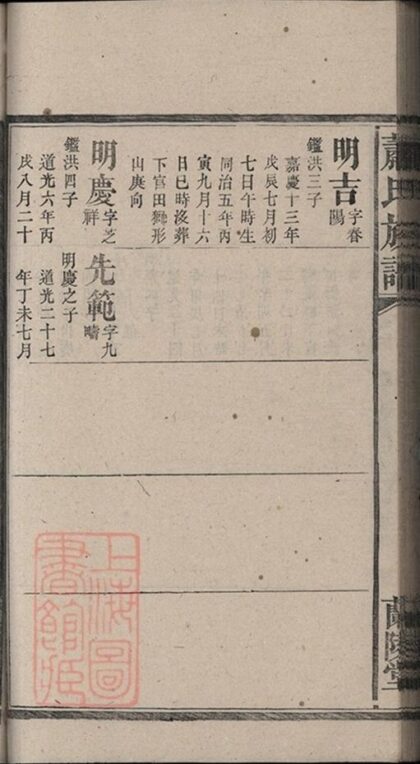 蕭氏族譜
蘭陵堂
明吉字春
陽
鑑洪三子
嘉慶十三年
戊辰七月初
七日午時生
同治五年丙
寅九月十六
日巳時沒葬
下官田獅形
山庚向
明慶字芝
祥
鑑洪四子
道光六年丙
戌八月二十
先範字九
疇
明慶之子
道光二十七
年丁未七月
上海圖
書館藏